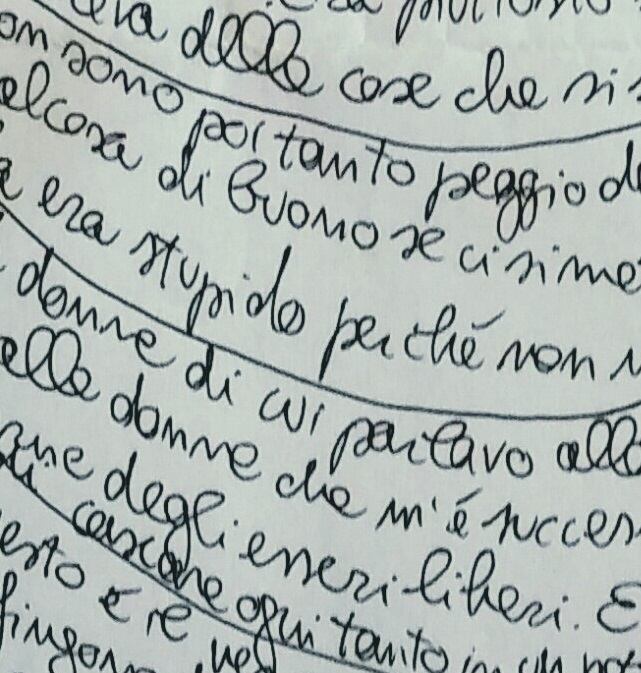 delle cose che si
on sono poi tanto peggio d
alcosa di buono se ci si me
era stupido perché non
donne di cui parlavo all
elle donne che m'è succes
degli esseri liberi. E
di cascare ogni tanto in un
esto e se
fingono